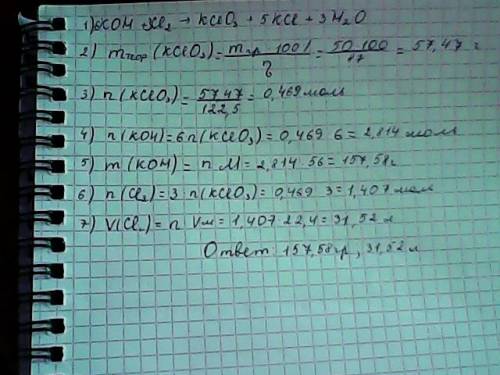 1) 6KOH + 3Cl₂ → KClO₃ + 5KCl + 3H₂O
2) mтеор (KClO₃) = mпр · 100% / η = 50 · 100 / 87 = 57,47 г
3) n(KClO₃) = 57,47 / 122,5 = 0,469 моль
4) n(KOH) = 6n(KClO₃) = 0,469 · 6 = 2,814 моль
5) m(KOH) = n · M = 2,814 · 56 = 157,58 г
6) n(Cl₂) = 3 · n(KClO₃) = 0,469 · 3 = 1,407 моль
7) V(Cl₂) = n · Vм = 1,407 · 22,4 = 31,52 л
Ответ: 157,58 гр, 31,52 л